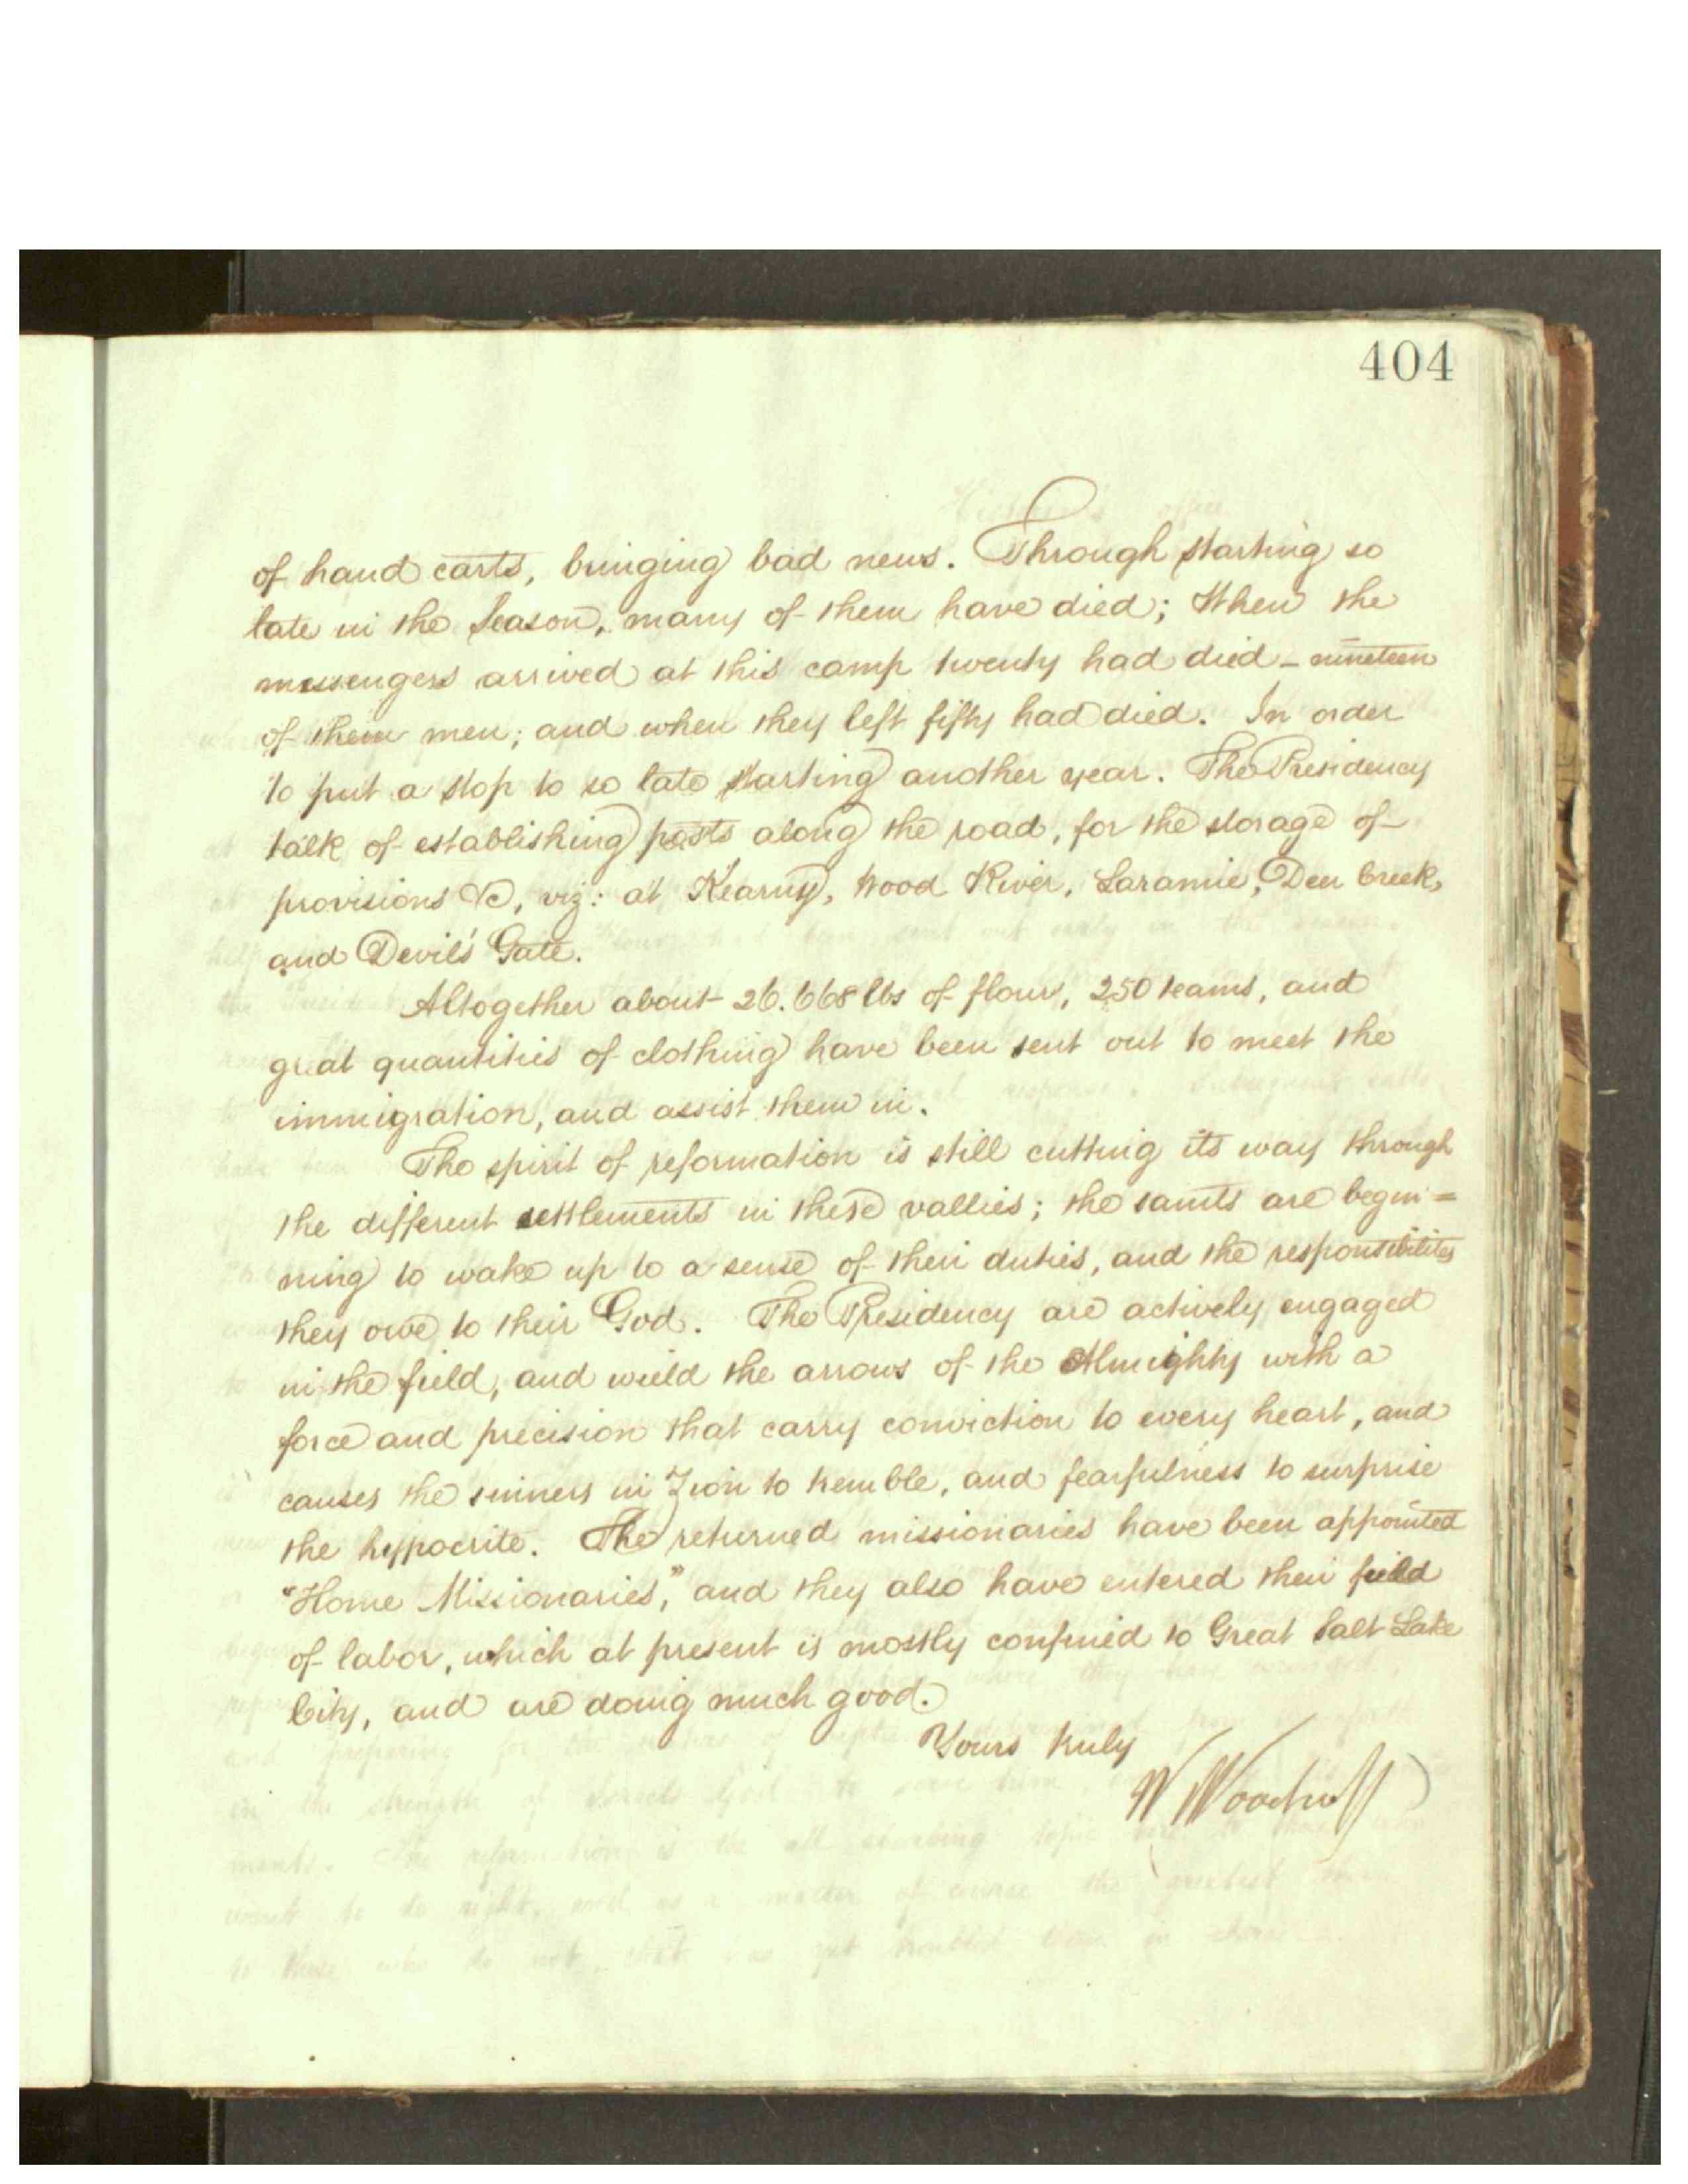 404
of hand carts, bringing bad news. Through starting so
late in the Season, many of them have died; When the
messengers arrived at this camp twenty had died - nineteen
of them men; and when they left fifty had died. In order
to put a stop to so late starting another year. The Presidency
talk of establishing posts along the road, for the storage of
provisions &c, viz: at Kearny, Wood River, Laramie, Deer Creek,
and Devil's Gate.
Altogether about 26.668 lbs of flour, 250 teams, and
great quantities of clothing have been sent out to meet the
immigration, and assist them in.
The spirit of reformation is still cutting its way through
the different settlements in these vallies; the saints are begin=
ning to wake up to a sense of their duties, and the responsibilites
they owe to their God. The Presidency are actively engaged
in the field, and wield the arrows of the Almighty with a
force and precision that carry conviction to every heart, and
causes the sinners in Zion to tremble, and fearfulness to surprise
the hypocrite. The returned missionaries have been appointed
"Home Missionaries," and they also have entered their field
of labor, which at present is mostly confined to Great Salt Lake
City, and are doing much good.
Yours truly
W Woodruff